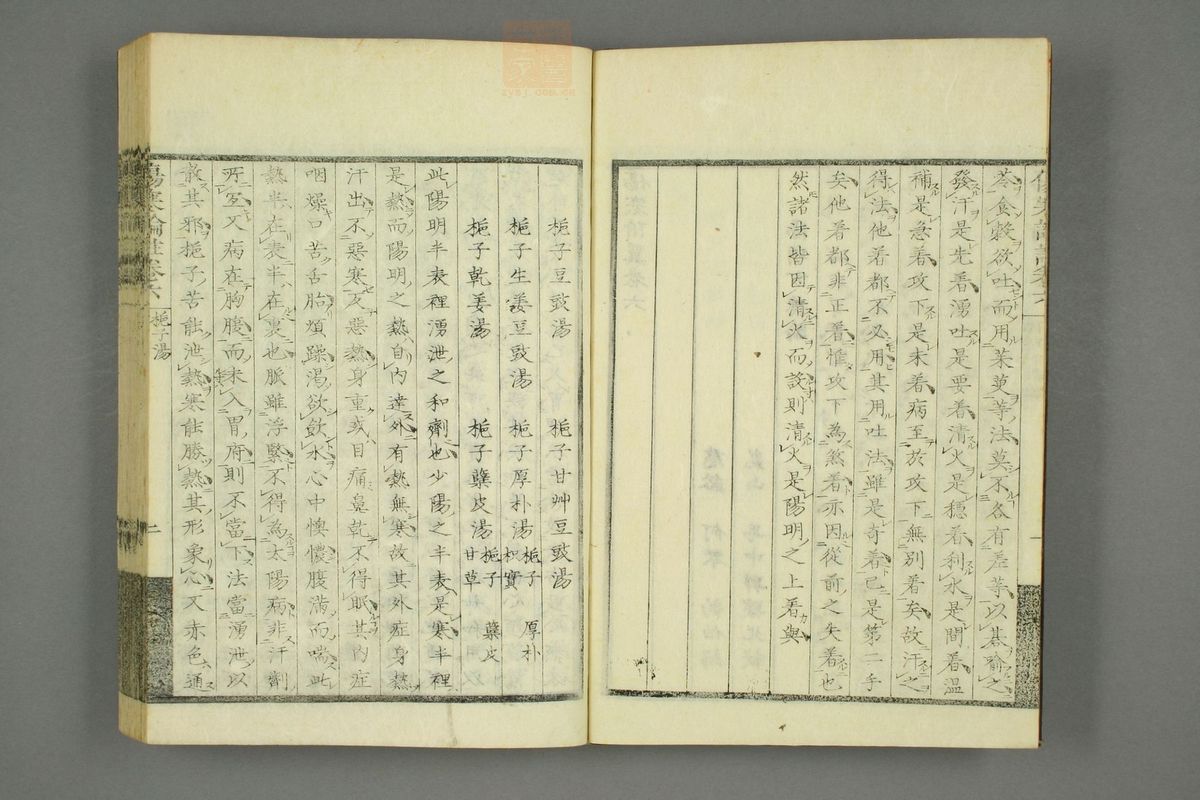 苓金穀欲吐而用茱萸等法莫不各有差等以棊喩之
發汗是先着湧吐是要着清火是穩着利水是間着溫
補是急着攻下是末着病至於攻下無別着矣故汗之
得法他着都不必用其用吐法雖是奇着已是第二手
矣他着都非正着惟攻下為煞着亦因從前之失着也
然諸法皆因清火而設則清火是陽明之上着與
梔子豆豉湯 梔子甘艸豆豉湯
梔子生姜豆豉湯 梔子厚朴湯 梔子 厚朴 枳實
梔子乾姜湯 梔子蘗皮湯 梔子 蘗皮 甘草
此陽明半表裡湧泄之和劑也少陽之半表是寒半裡
是熱而陽明之熱自內達外有熱無寒故其外症身熱
汗出不惡寒反惡熱身重或目痛鼻乾不得眠其內症
咽燥口苦舌胎煩躁渴欲飲水心中懊憹腹滿而喘此
熱半在表半在裏也脈雖浮緊不得為太陽病非汗劑
所宜又病在胸腹而未入胃府則不當下法當湧泄以
散其邪梔子苦能泄熱寒能勝熱其形象心又赤色通
梔子湯
二